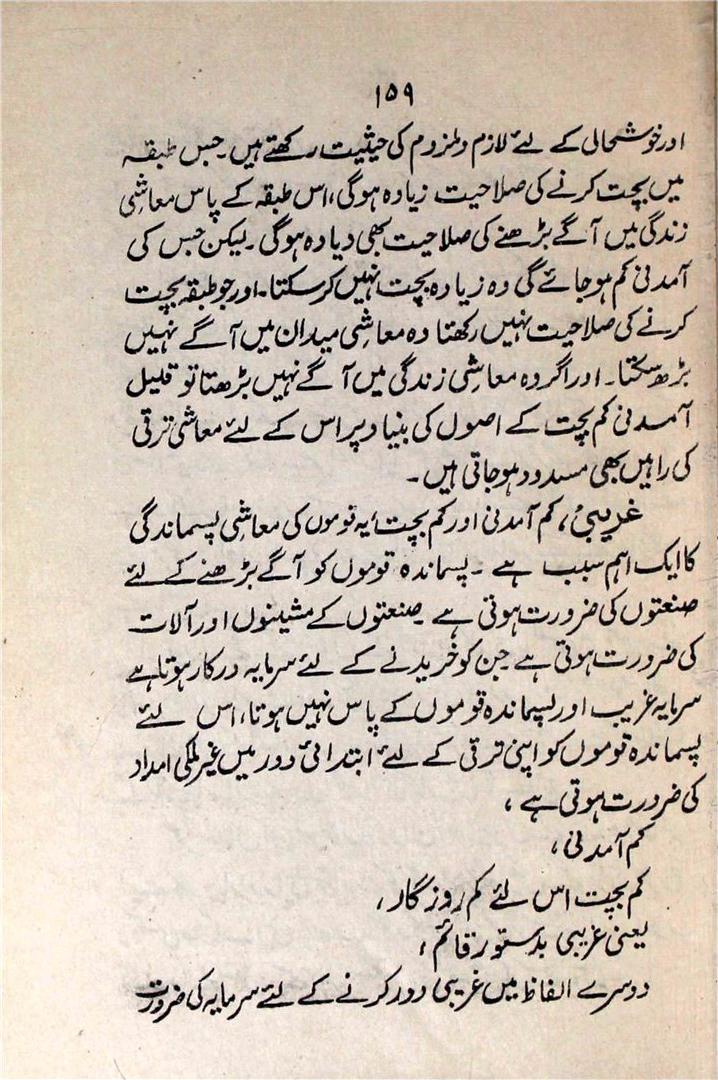 ۱۵۹
اور خوشحالی کے لئے لازم و ملزوم کی حیثیت رکھتے ہیں۔ جس طبقہ
میں بچت کرنے کی صلاحیت زیادہ ہوگی، اس طبقہ کے پاس معاشی
زندگی میں آگے بڑھنے کی صلاحیت بھی دیادہ ہوگی۔ لیکن جس کی
آمدنی کم ہو جائے گی وہ زیادہ بچت نہیں کر سکتا۔ اور جو طبقہ بچت
کرنے کی صلاحیت نہیں رکھتا وہ معاشی میدان میں آگے نہیں
بڑھ سکتا۔ اور اگر وہ معاشی زندگی میں آگے نہیں بڑھتا تو قلیل
آمدنی کم بچت کے اصول کی بنیاد پر اس کے لئے معاشی ترقی
کی راہیں بھی مسدود ہو جاتی ہیں۔
غریبی، کم آمدنی اور کم بچت، یہ قوموں کی معاشی پسماندگی
کا ایک اہم سبب ہے۔ پسماندہ قوموں کو آگے بڑھنے کے لئے
صنعتوں کی ضرورت ہوتی ہے۔ صنعتوں کے مشینوں اور آلات
کی ضرورت ہوتی ہے جن کو خریدنے کے لئے سرمایہ درکار ہوتا ہے
سرمایہ غریب اور پسماندہ قوموں کے پاس نہیں ہوتا، اس لئے
پسماندہ قوموں کو اپنی ترقی کے لئے ابتدائی دور میں غیر ملکی امداد
کی ضرورت ہوتی ہے،
کم آمدنی،
کم بچت اس لئے کم روزگار،
یعنی غریبی بدستور قائم،
دوسرے الفاظ میں غریبی دور کرنے کے لئے سرمایہ کی ضرورت